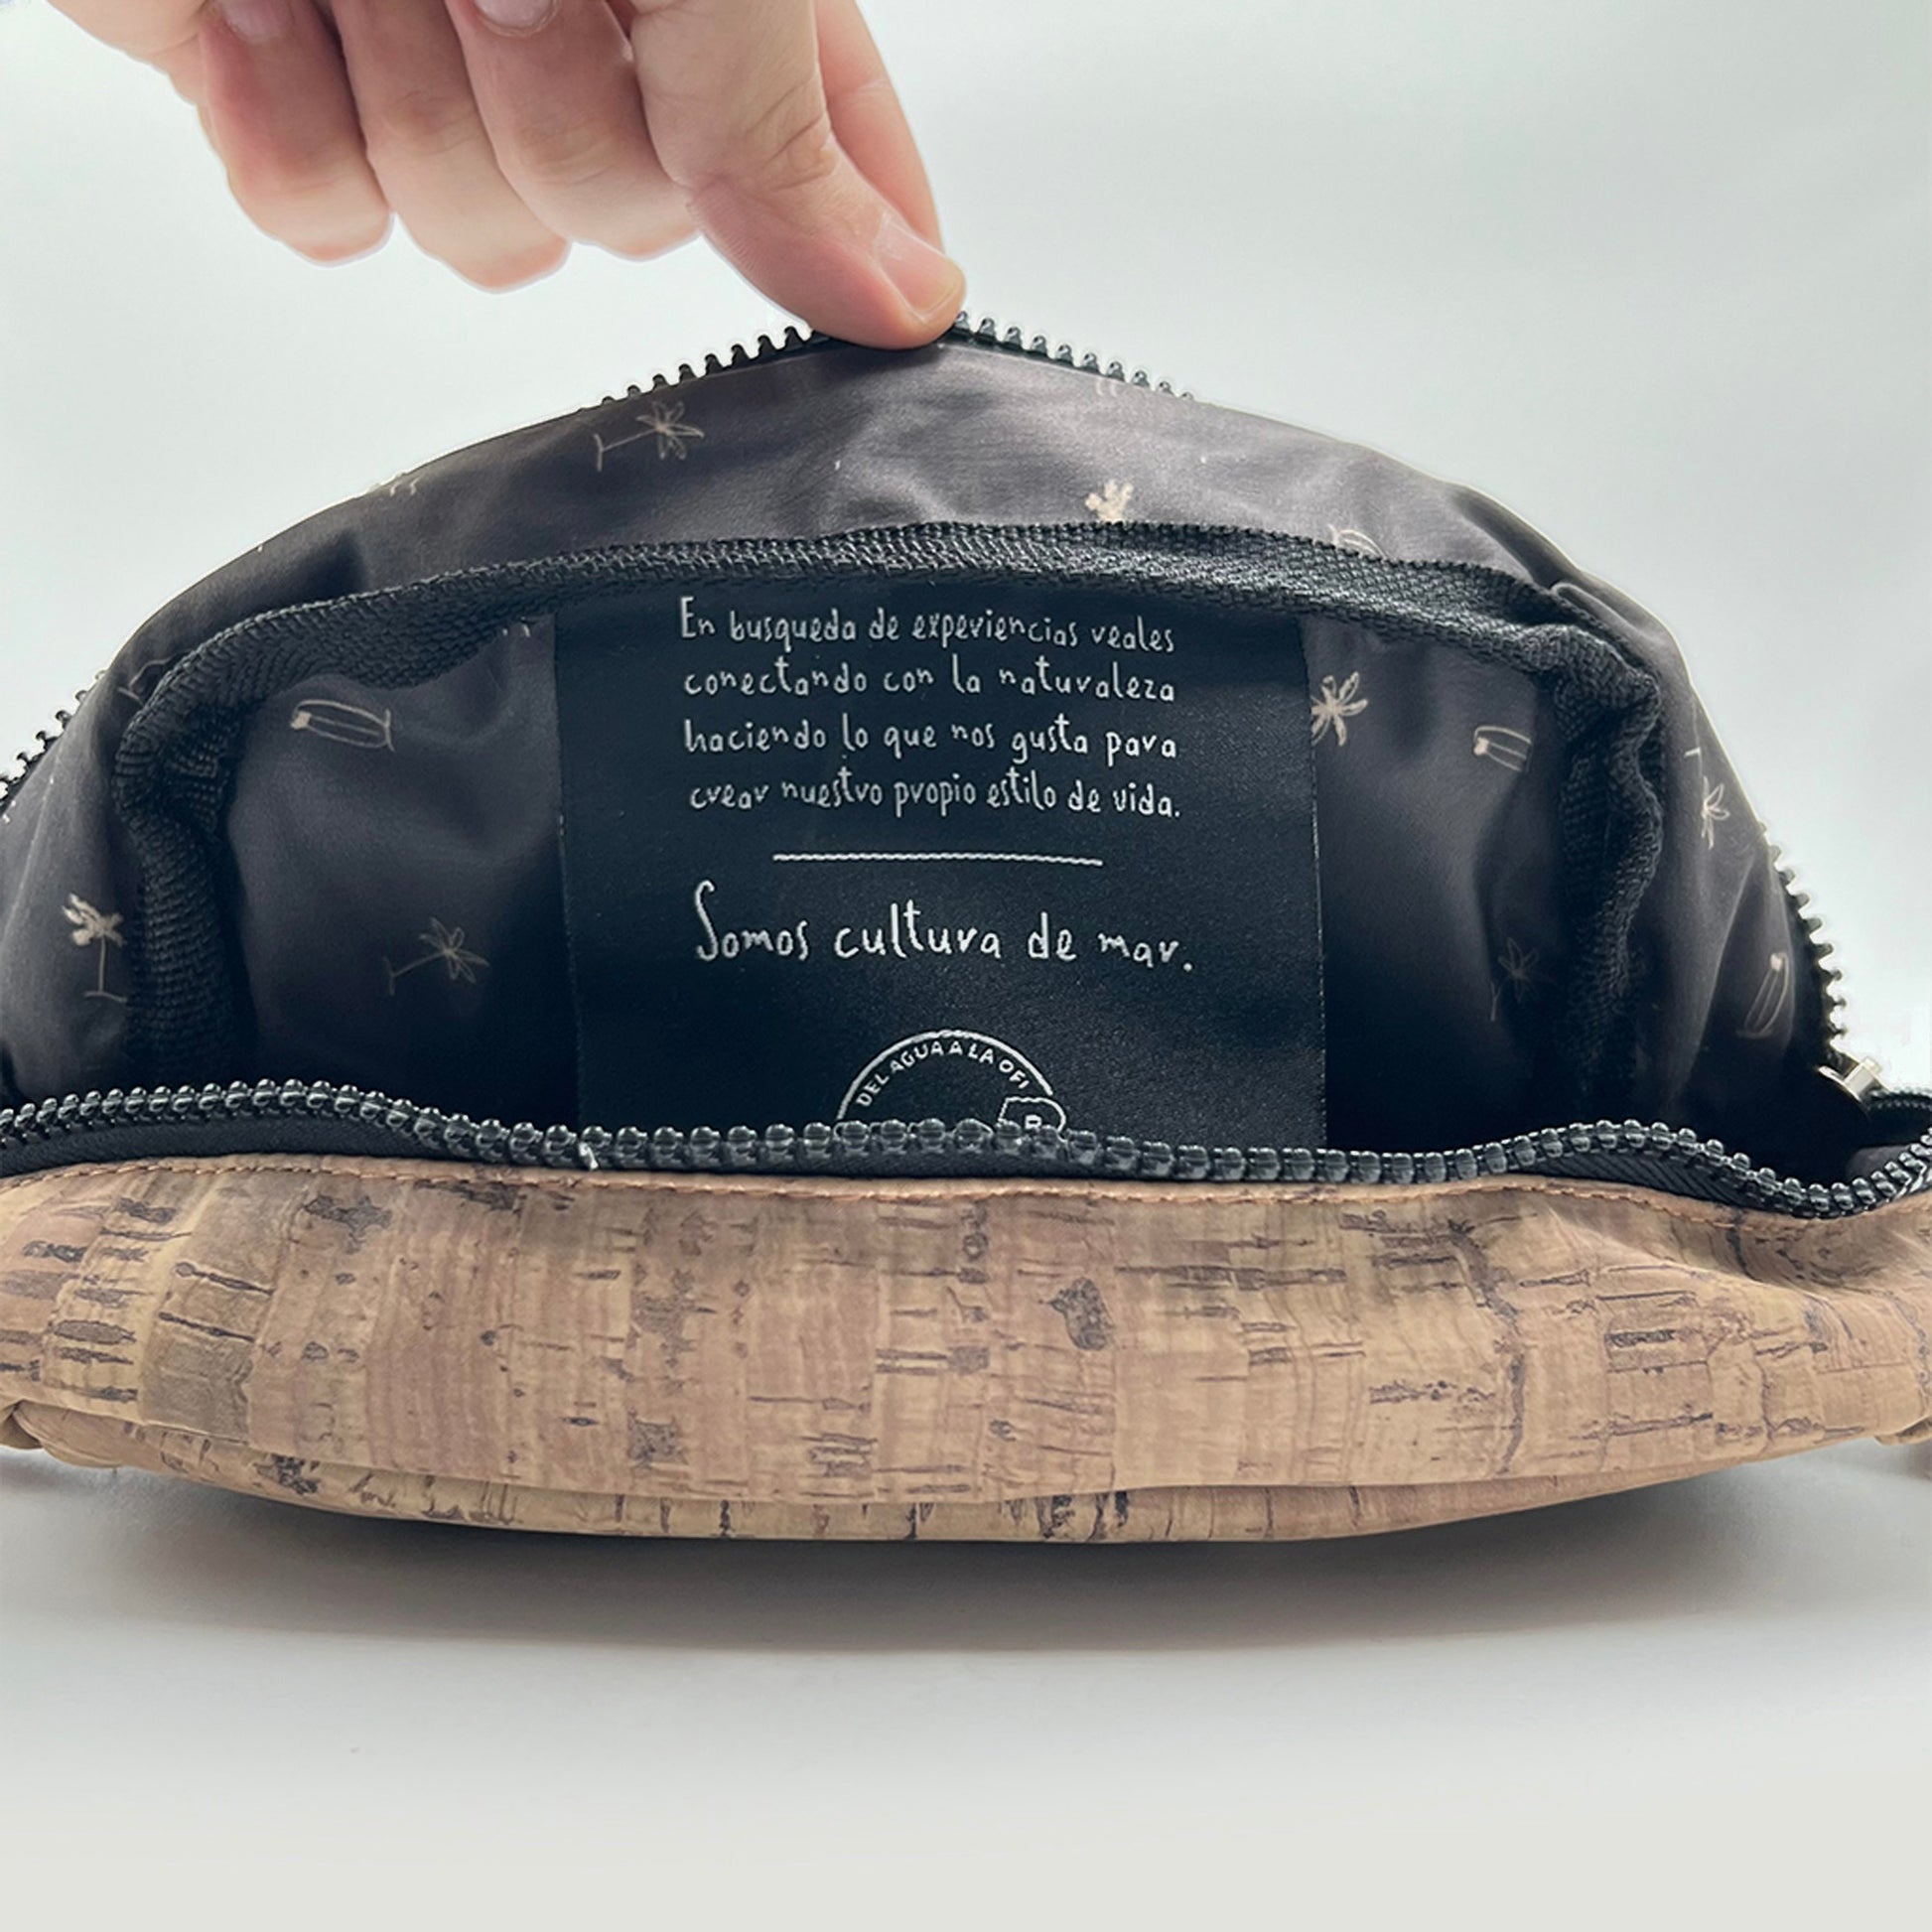 En busqueda de experiencias reales
conectando con la naturaleza
haciendo lo que nos gusta para
crear nuestro propio estilo de vida.
Somos cultura de mar.
DEL AGUA A LA OFI
B